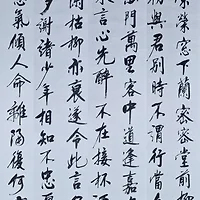 榮榮窗下蘭密密堂前柳
與君別時不謂行當久
門萬里客中道逢嘉
言心先醉不在接杯酒
蘭枯柳亦衰遂令此言
多謝諸少年相知不忠厚
意氣傾人命離隔復何